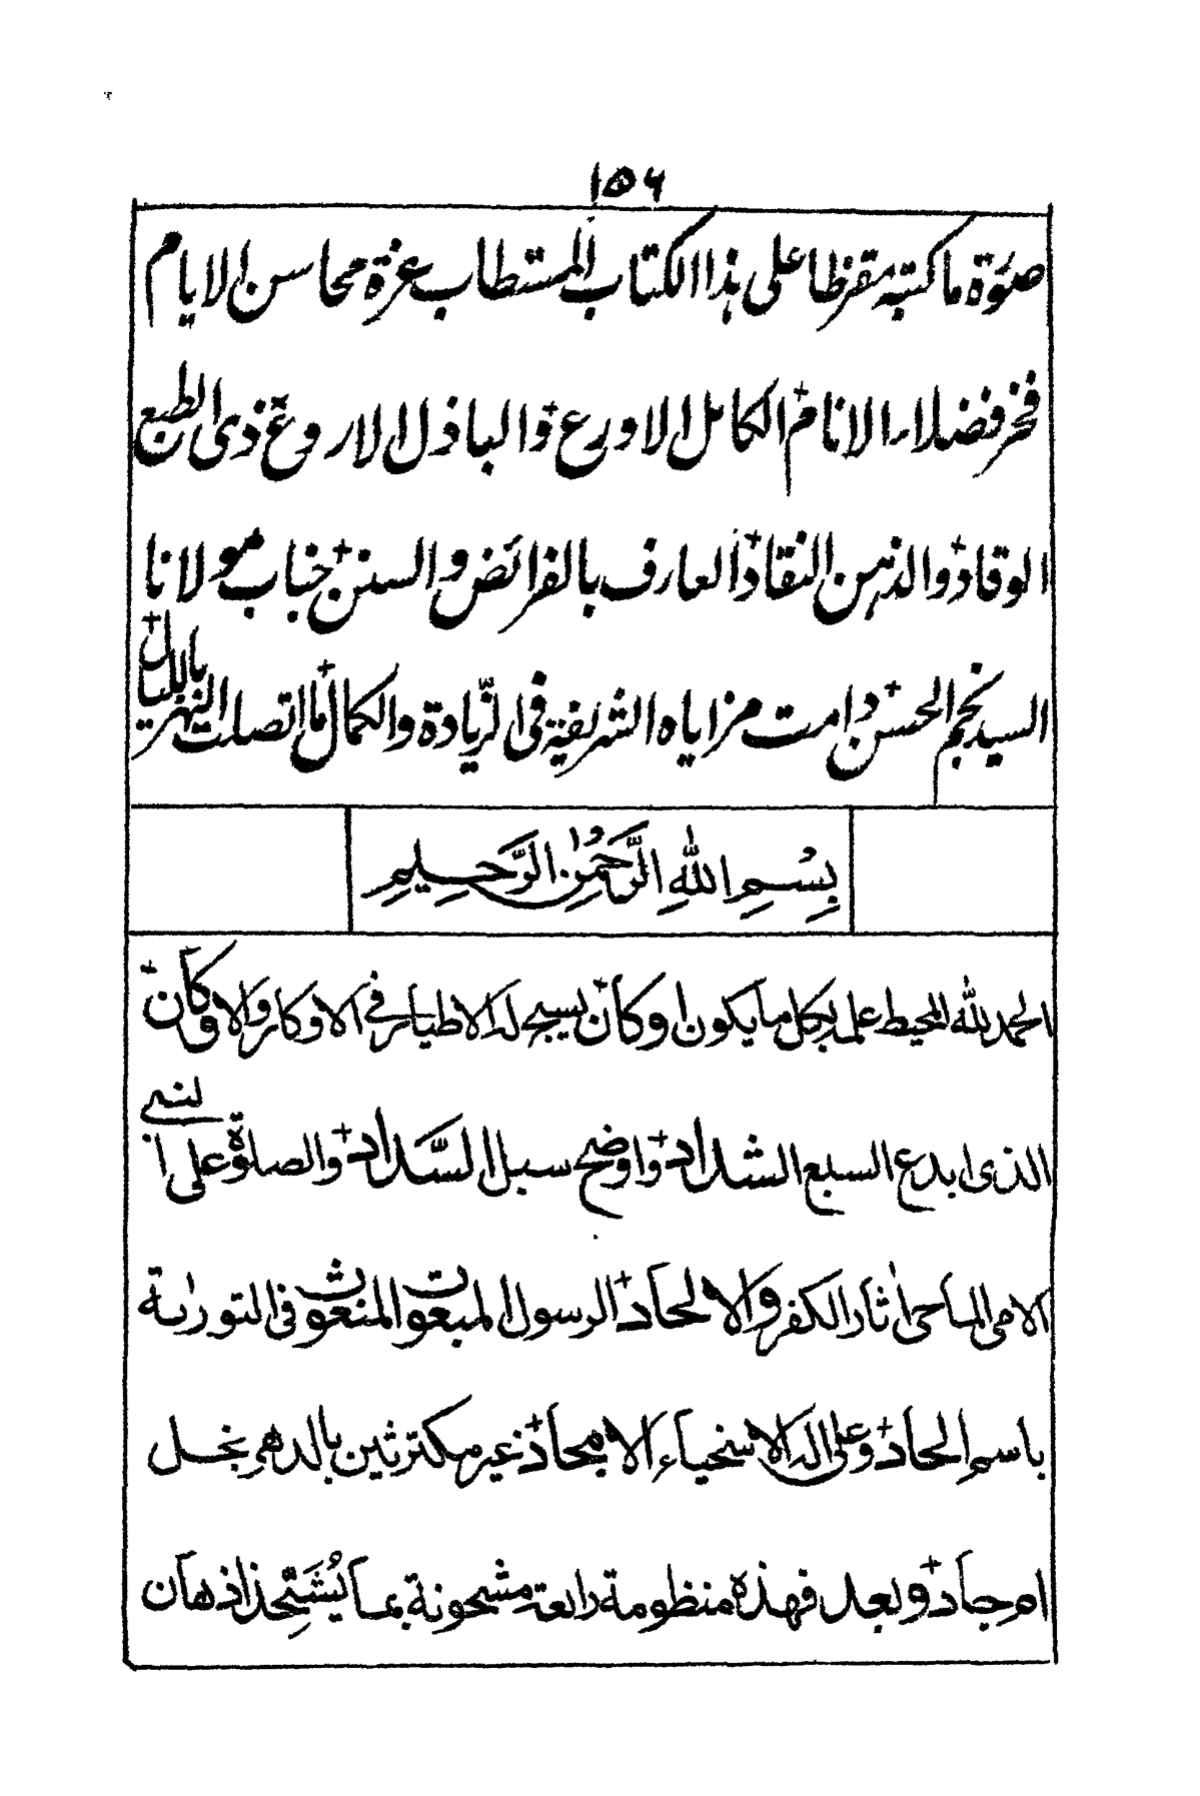 ١٥٦
صورة ما كتبه مقرظا على هذا الكتاب المستطاب غرة محاسن الايام
فخر فضلاء الانام الكامل الاورع والباذل الاروع ذى الطبع
الوقاد والذهن النقاد العارف بالفرائض والسنن جناب مولانا
السيد نجم الحسن دامت مزاياه الشريفة فى الزيادة والكمال ما اتصلت النهر بالليال
بِسْمِ اللهِ الرَّحْمٰنِ الرَّحِيمِ
الحمد لله المحيط علمه بكل ما يكون او كان يسبح له الاطيار فى الاوكار والاوكان
الذى ابدع السبع الشداد واوضح سبل السَّداد والصلوة على النبى
الامى الماحى اثار الكفر والالحاد الرسول المبعوث المنعوث فى التورىة
باسم الحاد وعلى اله الاسخياء الامجاد غير مكترثين بالدهر بخل
ام جاد وبعد فهذه منظومة رائعة مشحونة بما يُشَتَّحذ اذهان